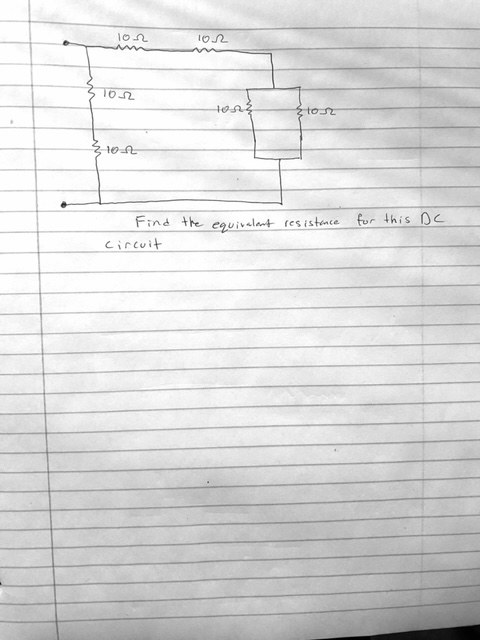 10Ω 10Ω
10Ω
10Ω 10Ω
10Ω
Find the equivalent resistance for this DC
circuit